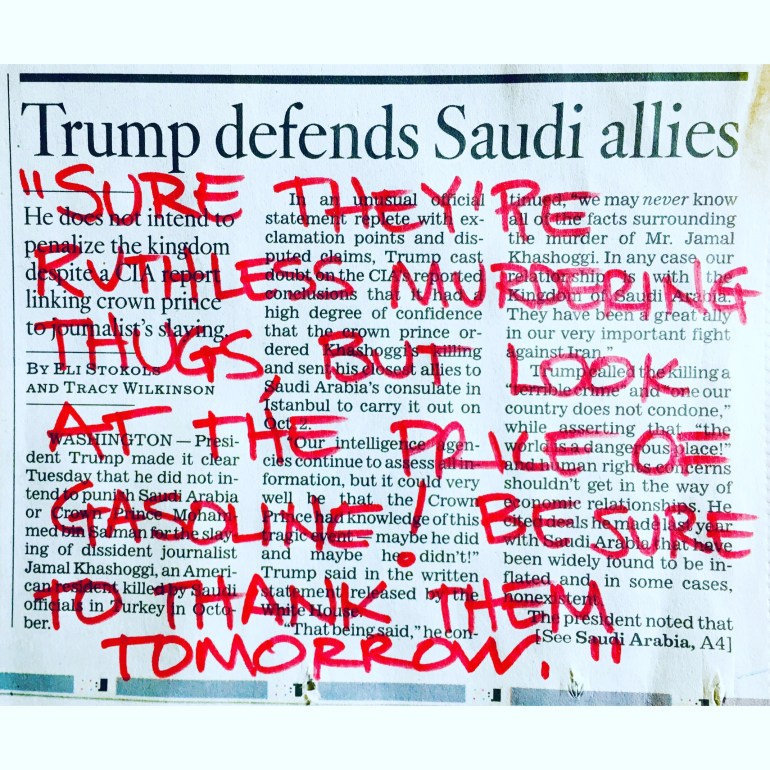 Trump defends Saudi allies
"SURE THEY'RE
RUTHLESS MURDERING
THUGS, BUT LOOK
AT THE PRICE OF
GASOLINE! BE SURE
TO THANK THEM
TOMORROW."
He does not intend to
penalize the kingdom
despite a CIA report
linking crown prince
to journalist's slaying.
BY ELI STOKOLS
AND TRACY WILKINSON
WASHINGTON — Presi-
dent Trump made it clear
Tuesday that he did not in-
tend to punish Saudi Arabia
or Crown Prince Moham-
med bin Salman for the slay-
ing of dissident journalist
Jamal Khashoggi, an Ameri-
can resident killed by Saudi
officials in Turkey in Octo-
ber.
In an unusual official
statement replete with ex-
clamation points and dis-
puted claims, Trump cast
doubt on the CIA's reported
conclusions that it had a
high degree of confidence
that the crown prince or-
dered Khashoggi's killing
and sent his closest allies to
Saudi Arabia's consulate in
Istanbul to carry it out on
Oct. 2.
"Our intelligence agen-
cies continue to assess all in-
formation, but it could very
well be that the Crown
Prince had knowledge of this
tragic event — maybe he did
and maybe he didn't!"
Trump said in the written
statement released by the
White House.
"That being said," he con-
tinued, "we may never know
all of the facts surrounding
the murder of Mr. Jamal
Khashoggi. In any case, our
relationship is with the
Kingdom of Saudi Arabia.
They have been a great ally
in our very important fight
against Iran."
Trump called the killing a
"terrible crime" and "one our
country does not condone,"
while asserting that "the
world is a dangerous place!"
and human rights concerns
shouldn't get in the way of
economic relationships. He
cited deals he made last year
with Saudi Arabia that have
been widely found to be in-
flated and, in some cases,
nonexistent.
The president noted that
[See Saudi Arabia, A4]